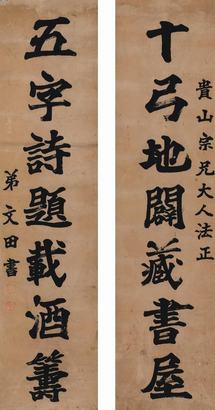 貴山宗兄大人法正
十弓地闢藏書屋
五字詩題載酒籌
弟文田書